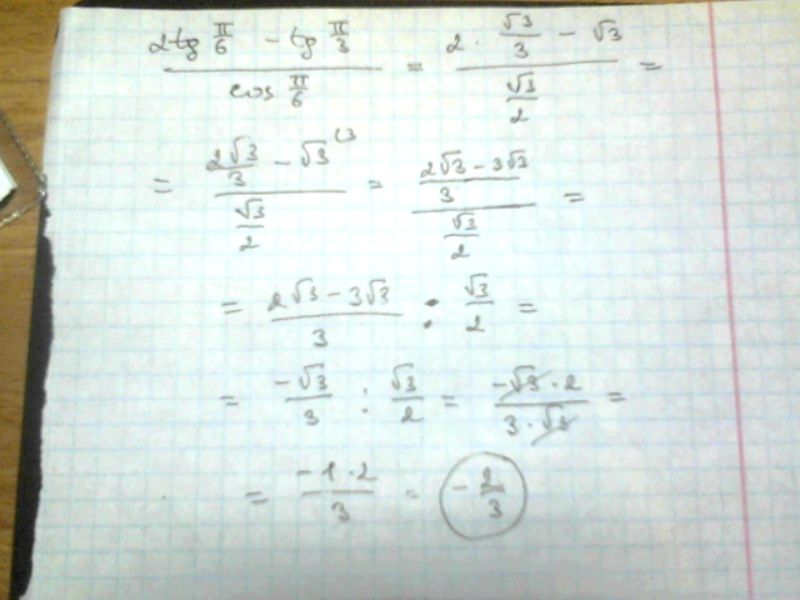 (2tg π/6 - tg π/3)/(cos π/6) = (2 · √3/3 - √3)/(√3/2) =
= (2√3/3 - √3 (3)/(√3/2) = ((2√3 - 3√3)/3)/(√3/2) =
= (2√3 - 3√3)/3 : √3/2 =
= -√3/3 : √3/2 = (-√3 · 2)/(3 · √3) =
= (-1 · 2)/3 = -2/3